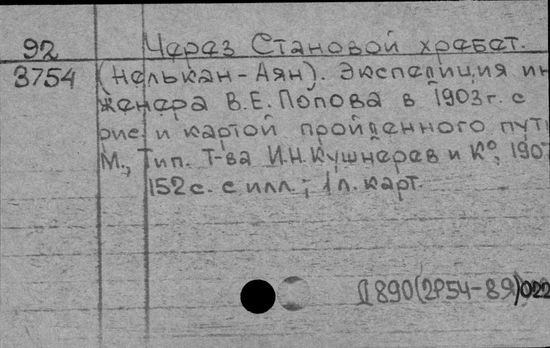 92 Через Становой хребет.
3754 (Нелькан-Аян). Экспедиция ин-
женера В.Е. Попова в 1903г. с
рис. и картой пройденного пути
М., Тип. Т-ва И.Н. Кушнерев и Кº, 190
152 с. с илл.; 1 л. карт.
Д890(2Р54-89)022